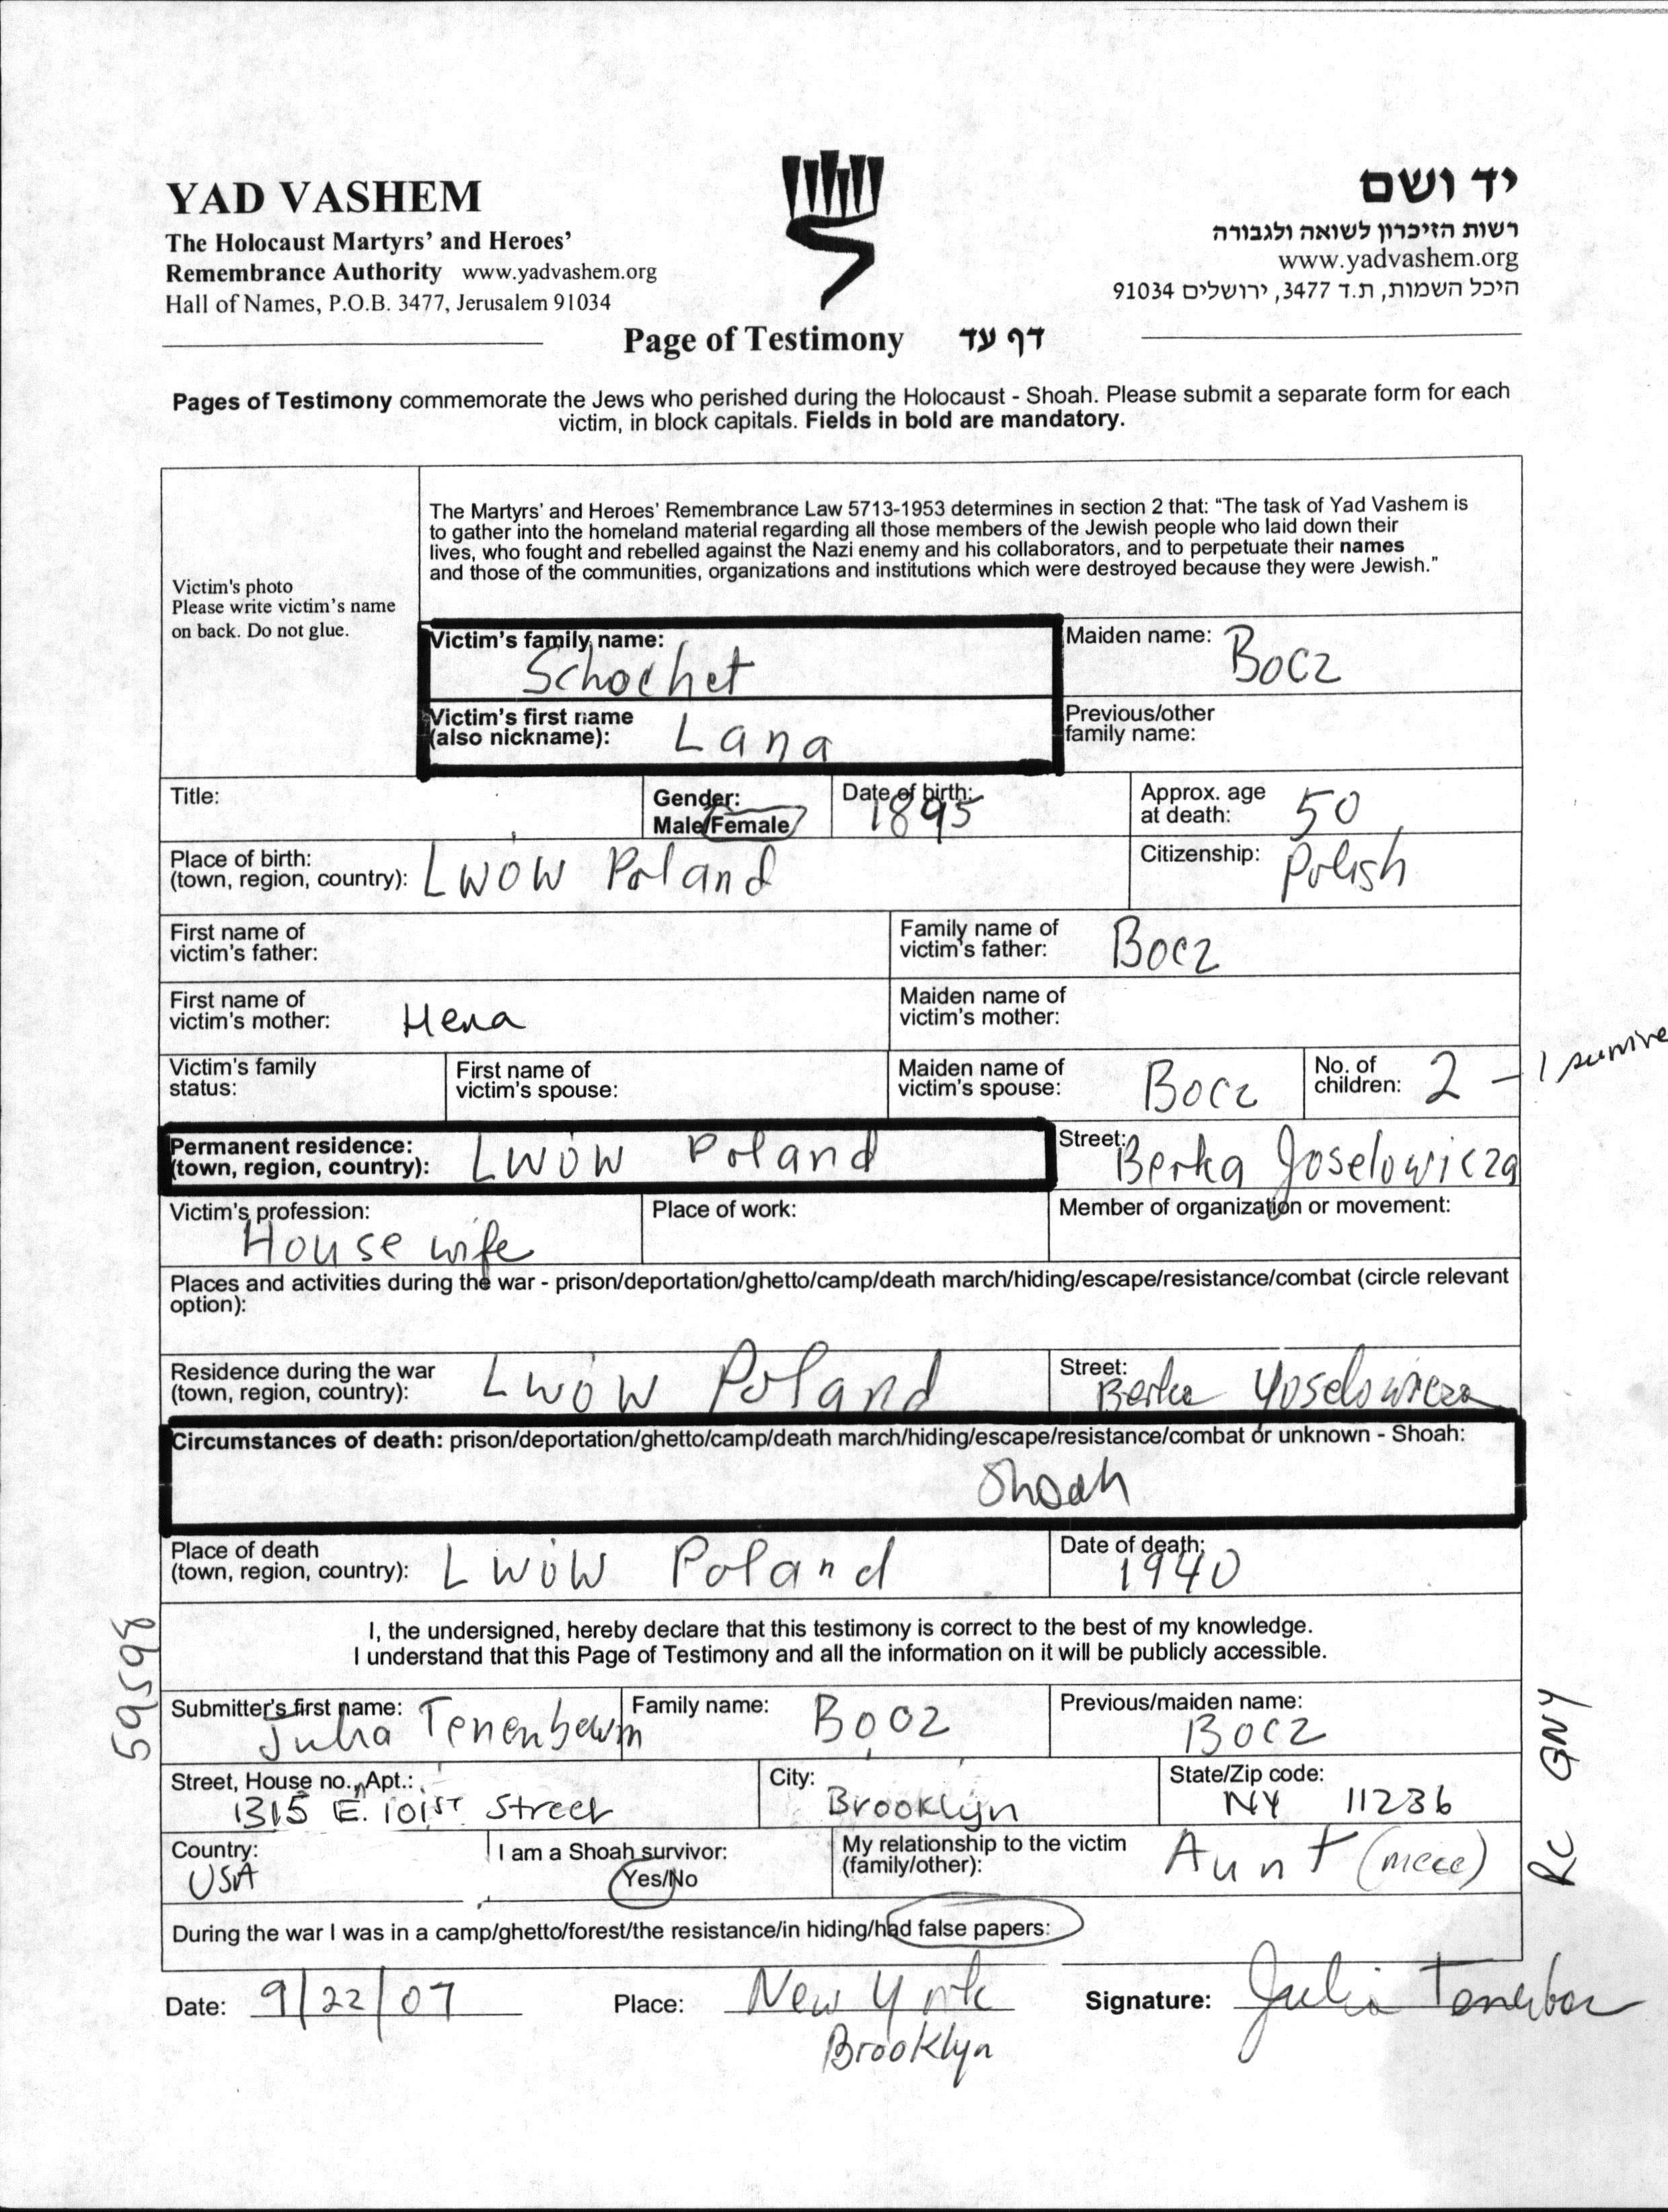 YAD VASHEM
The Holocaust Martyrs' and Heroes'
Remembrance Authority www.yadvashem.org
Hall of Names, P.O.B. 3477, Jerusalem 91034
יד ושם
רשות הזיכרון לשואה ולגבורה
www.yadvashem.org
היכל השמות, ת.ד 3477, ירושלים 91034
Page of Testimony דף עד
Pages of Testimony commemorate the Jews who perished during the Holocaust - Shoah. Please submit a separate form for each
victim, in block capitals. Fields in bold are mandatory.
Victim's photo
Please write victim's name
on back. Do not glue.
The Martyrs' and Heroes' Remembrance Law 5713-1953 determines in section 2 that: "The task of Yad Vashem is
to gather into the homeland material regarding all those members of the Jewish people who laid down their
lives, who fought and rebelled against the Nazi enemy and his collaborators, and to perpetuate their names
and those of the communities, organizations and institutions which were destroyed because they were Jewish."
Victim's family name: Schochet
Maiden name: Bocz
Victim's first name
(also nickname): Lana
Previous/other
family name:
Title:
Gender:
Male/Female
Date of birth: 1895
Approx. age
at death: 50
Place of birth:
(town, region, country): LWOW Poland
Citizenship: Polish
First name of
victim's father:
Family name of
victim's father: Bocz
First name of
victim's mother: Hena
Maiden name of
victim's mother:
Victim's family
status:
First name of
victim's spouse:
Maiden name of
victim's spouse: Bocz
No. of
children: 2 - 1 survive
Permanent residence:
(town, region, country): LWÓW Poland
Street: Berka Joselowicza
Victim's profession: House wife
Place of work:
Member of organization or movement:
Places and activities during the war - prison/deportation/ghetto/camp/death march/hiding/escape/resistance/combat (circle relevant
option):
Residence during the war
(town, region, country): LWÓW Poland
Street: Berka Yoselowicza
Circumstances of death: prison/deportation/ghetto/camp/death march/hiding/escape/resistance/combat or unknown - Shoah:
Shoah
Place of death
(town, region, country): LWÓW Poland
Date of death: 1940
I, the undersigned, hereby declare that this testimony is correct to the best of my knowledge.
I understand that this Page of Testimony and all the information on it will be publicly accessible.
59598
Submitter's first name: Julia Tenenbaum
Family name: Booz
Previous/maiden name: Bocz
RC GNY
Street, House no., Apt.: 1315 E. 101ST Street
City: Brooklyn
State/Zip code: NY 11236
Country: USA
I am a Shoah survivor:
Yes/No
My relationship to the victim
(family/other): Aunt (niece)
During the war I was in a camp/ghetto/forest/the resistance/in hiding/had false papers:
Date: 9/22/07
Place: New York
Brooklyn
Signature: Julia